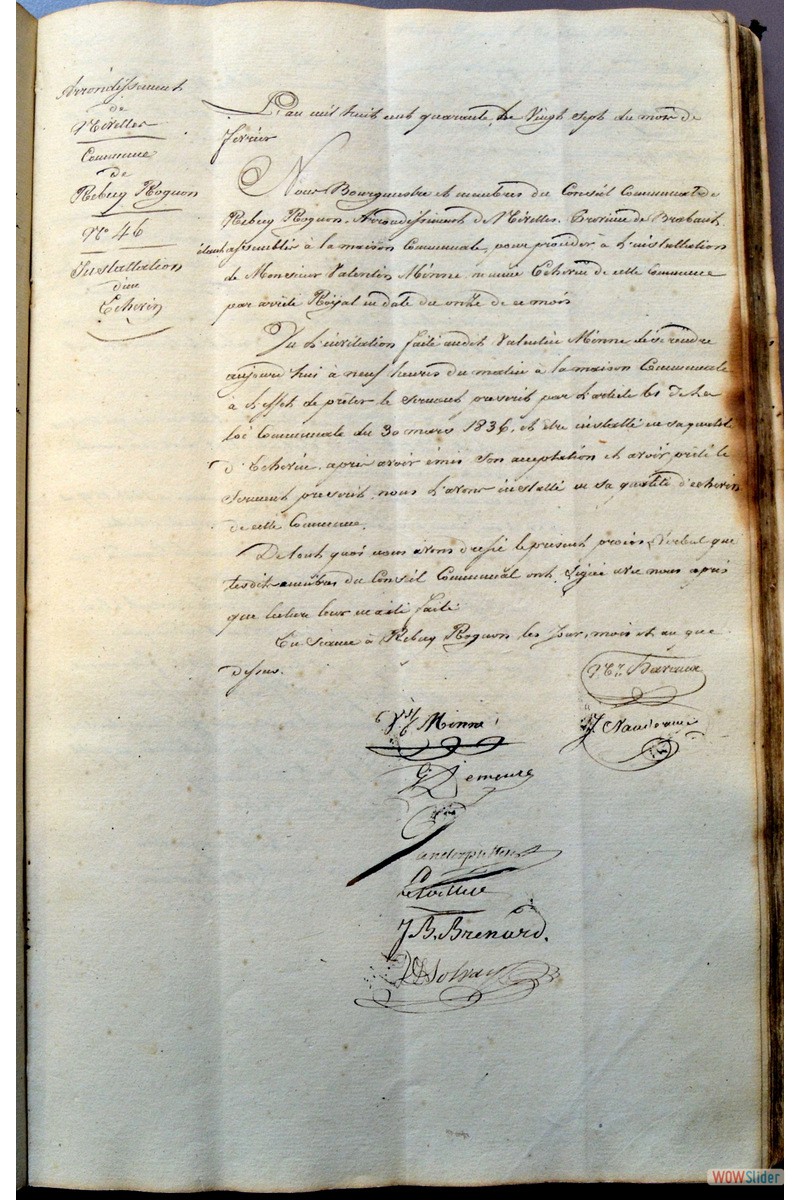 Arrondissement
de
Nivelles
Commune
De
Rebecq Rognon
N° 46
Installation
d'un
Echevin
L'an mil huit cent quarante, le Vingt Sept du mois de
fevrier
Nous Bourgmestre et membres du Conseil Communal de
Rebecq Rognon, Arrondissement de Nivelles, Province de Brabant,
étant assemblés à la maison Communale, pour procéder à l'installation
de Monsieur Valentin Minne, nommé Echevin de cette Commune
par arrêté Royal en date du onze de ce mois
Vu l'invitation faite audit Valentin Minne de se rendre
aujourd'hui à neuf heures du matin à la maison Communale
à l'effet de prêter le serment prescrit par l'article 61 de la
Loi Communale du 30 mars 1836, et être installé en sa qualité
d'Echevin, après avoir émis son acceptation et avoir prêté le
Serment prescrit, nous l'avons installé en sa qualité d'echevin
de cette Commune.
De tout quoi nous avons dressé le présent procès Verbal que
lesdits membres du Conseil Communal ont Signé avec nous après
que lecture leur en a été faite.
En Séance à Rebecq Rognon les Jour, mois et an que
dessus.
Minne
Demeure
J. B. Brenard.